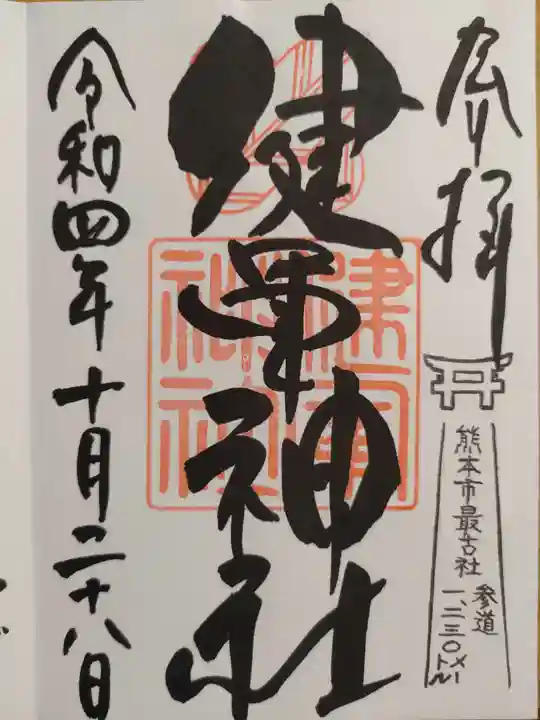 奉拝
熊本市最古社
参道
一、二三〇メートル
健軍神社
健軍
神社
令和四年十月二十八日